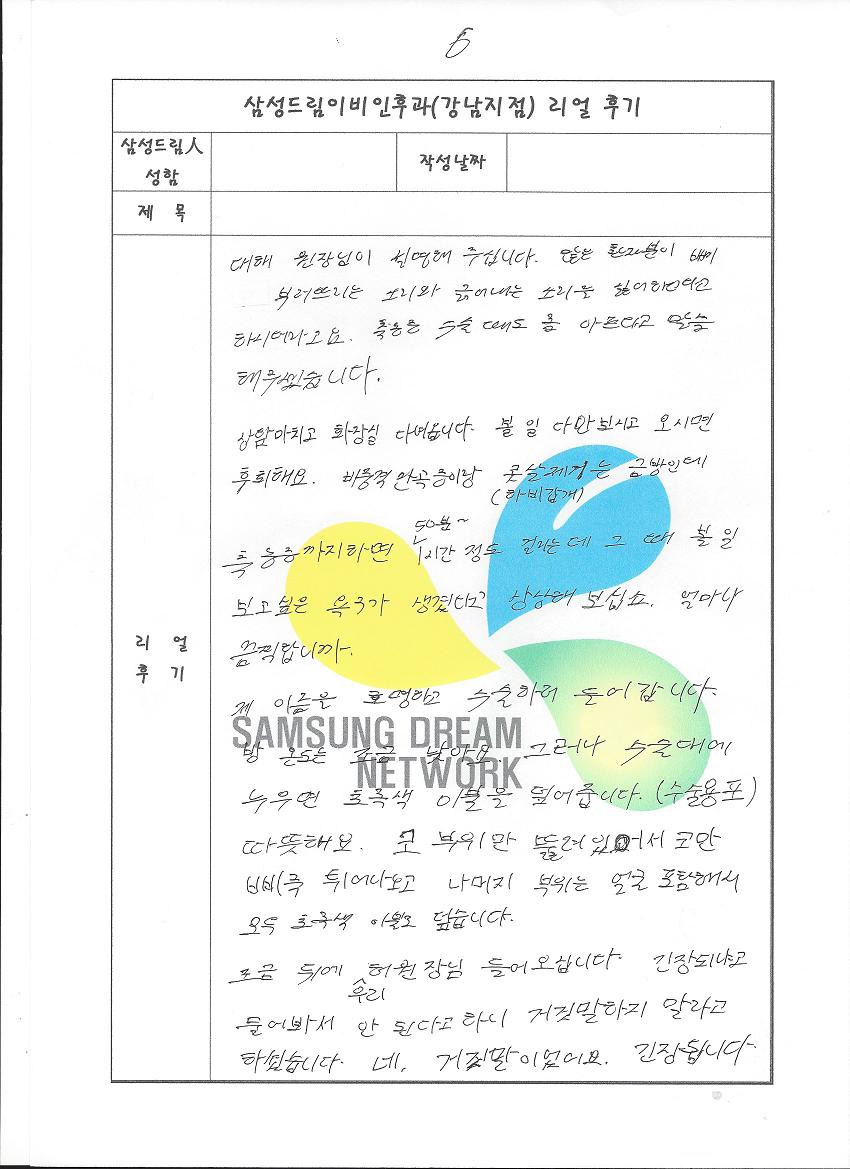 6
삼성드림이비인후과(강남지점) 리얼 후기
삼성드림人
성함
작성날짜
제 목
리 얼
후 기
대해 원장님이 설명해 주십니다. 많은 환자분이 뼈
부러뜨리는 소리와 긁어내는 소리를 싫어하신다고
하시더라고요. 축농은 수술 때도 좀 아프다고 말씀
해주셨습니다.
상담마치고 화장실 다녀옵니다. 볼 일 다 안 보시고 오시면
후회해요. 비중격 만곡증이랑 콧살제거는 금방인데
(하비갑개)
50분~
축농증까지하면 1시간 정도 걸리는데 그 때 볼 일
보고싶은 욕구가 생겼다고 상상해 보십쇼. 얼마나
끔찍합니까.
제 이름을 호명하고 수술하러 들어갑니다.
SAMSUNG DREAM
NETWORK
방 온도는 조금 낮아요. 그러나 수술대에
누우면 초록색 이불을 덮어줍니다. (수술용포)
따뜻해요. 코 부위만 뚫려있어서 코만
삐쭉 튀어나오고 나머지 부위는 얼굴 포함해서
모두 초록색 이불로 덮습니다.
조금 뒤에 허원장님 들어오십니다. 긴장되냐고
우리
물어봐서 안 된다고 하니 거짓말하지 말라고
하셨습니다. 네, 거짓말이었어요. 긴장됩니다.